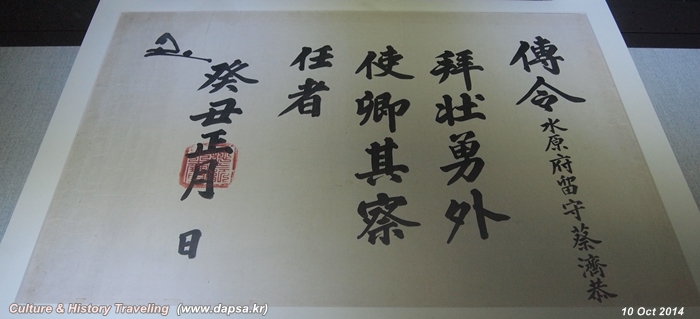 傳令 水原府留守蔡濟恭
拜壯勇外
使卿其察
任者
癸丑正月 日
Culture & History Traveling (www.dapsa.kr)
10 Oct 2014